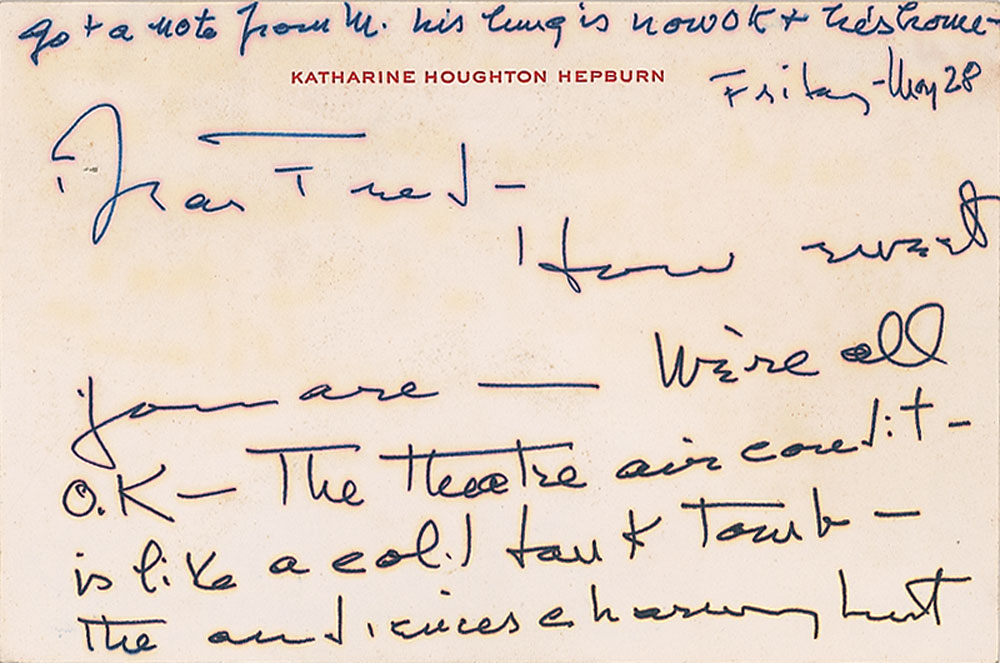 got a note from M. his lung is now OK + he's home-
KATHARINE HOUGHTON HEPBURN
Friday - May 28
Dear Fred -
How sweet
you are — We're all
O.K — The theatre air condit -
is like a cold tank Tomb —
The audiences charming but